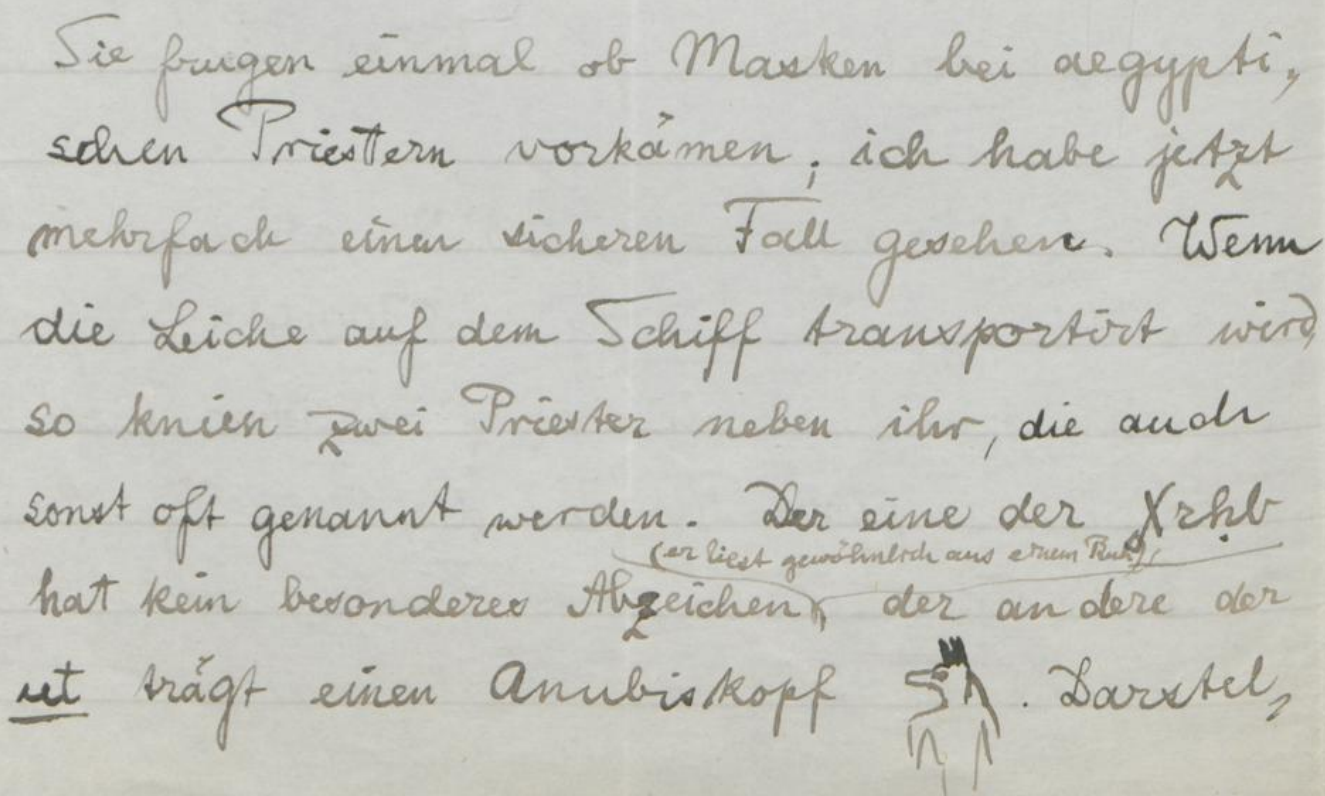 Sie frugen einmal ob Masken bei aegypti,
schen Priestern vorkämen, ich habe jetzt
mehrfach einen sicheren Fall gesehen. Wenn
die Leiche auf dem Schiff transportirt wird
so knien zwei Priester neben ihr, die auch
sonst oft genannt werden. Der eine der Xrḥb
(er liest gewöhnlich aus einem Buch)
hat kein besonderes Abzeichen, der andere der
ut trägt einen Anubiskopf . Darstel,